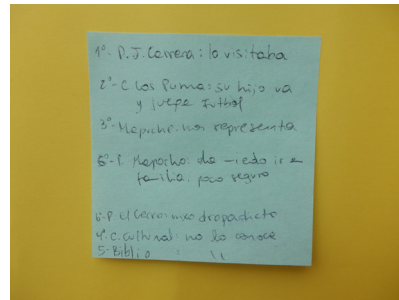 1º- P.J. Carrera: lo visitaba
2º- C Los Puma: su hijo va
y juega futbol
3º- Mapocho: nos representa
6º- P. Mapocho: da miedo ir en
familia, poco seguro
6-P el Cerro: mxo dropadicto
4º- C. Cultural: no lo conoce
5- Biblio : \\